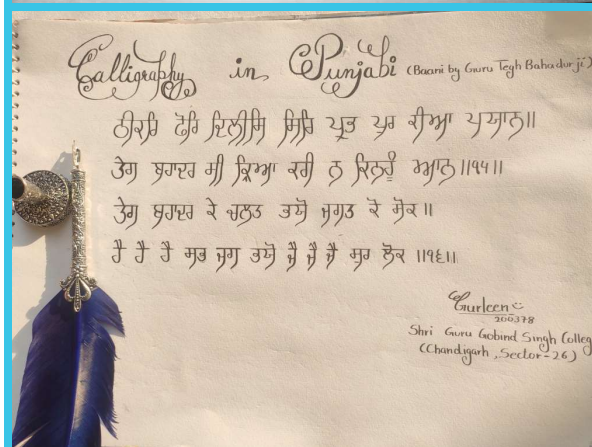 Calligraphy in Punjabi (Baani by Guru Tegh Bahadur ji)
ਠੀਕਰਿ ਫੋਰਿ ਦਿਲੀਸਿ ਸਿਰਿ ਪ੍ਰਭ ਪੁਰ ਕੀਆ ਪਯਾਨ॥
ਤੇਗ ਬਹਾਦਰ ਸੀ ਕ੍ਰਿਆ ਕਰੀ ਨ ਕਿਨਹੂੰ ਆਨ॥੧੫॥
ਤੇਗ ਬਹਾਦਰ ਕੇ ਚਲਤ ਭਯੋ ਜਗਤ ਕੋ ਸੋਕ॥
ਹੈ ਹੈ ਹੈ ਸਭ ਜਗ ਭਯੋ ਜੈ ਜੈ ਜੈ ਸੁਰ ਲੋਕ ॥੧੬॥
Gurleen
200378
Shri Guru Gobind Singh Colleg
(Chandigarh, Sector-26)